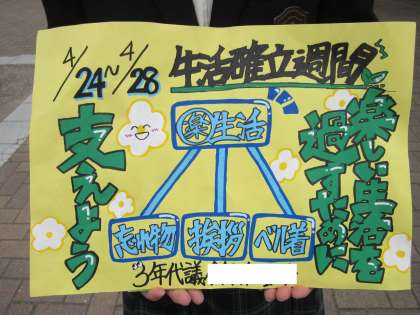 4/24〜4/28
生活確立週間
楽しい生活を
過すために
㊝生活
忘れ物
挨拶
ベル着
支えよう
3年代議